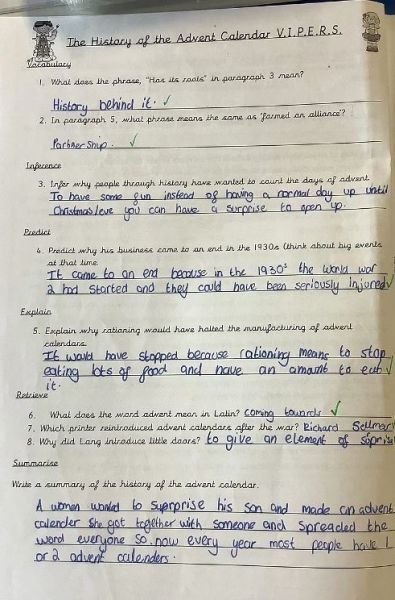 The History of the Advent Calendar V.I.P.E.R.S.
Vocabulary
1. What does the phrase, "Has its roots" in paragraph 3 mean?
History behind it.
2. In paragraph 5, what phrase means the same as 'formed an alliance'?
Partner Ship.
Inference
3. Infer why people through history have wanted to count the days of advent
To have some fun instead of having a normal day up until
Christmas/eve you can have a surprise to open up.
Predict
4. Predict why his business came to an end in the 1930s (think about big events
at that time
It came to an end because in the 1930s the world war
2 had started and they could have been seriously Injured
Explain
5. Explain why rationing would have halted the manufacturing of advent
calendars.
It would have stopped because rationing means to stop
eating lots of food and have an amount to eat
it.
Retrieve
6. What does the word advent mean in Latin? Coming towards
7. Which printer reintroduced advent calendars after the war? Richard Sellmar
8. Why did Lang introduce little doors? to give an element of soprise
Summarise
Write a summary of the history of the advent calendar.
A women wanted to Suprprise his son and made an advent
calender She got together with someone and Spreaded the
word everyone so now every year most people have 1
or 2 advent calenders.